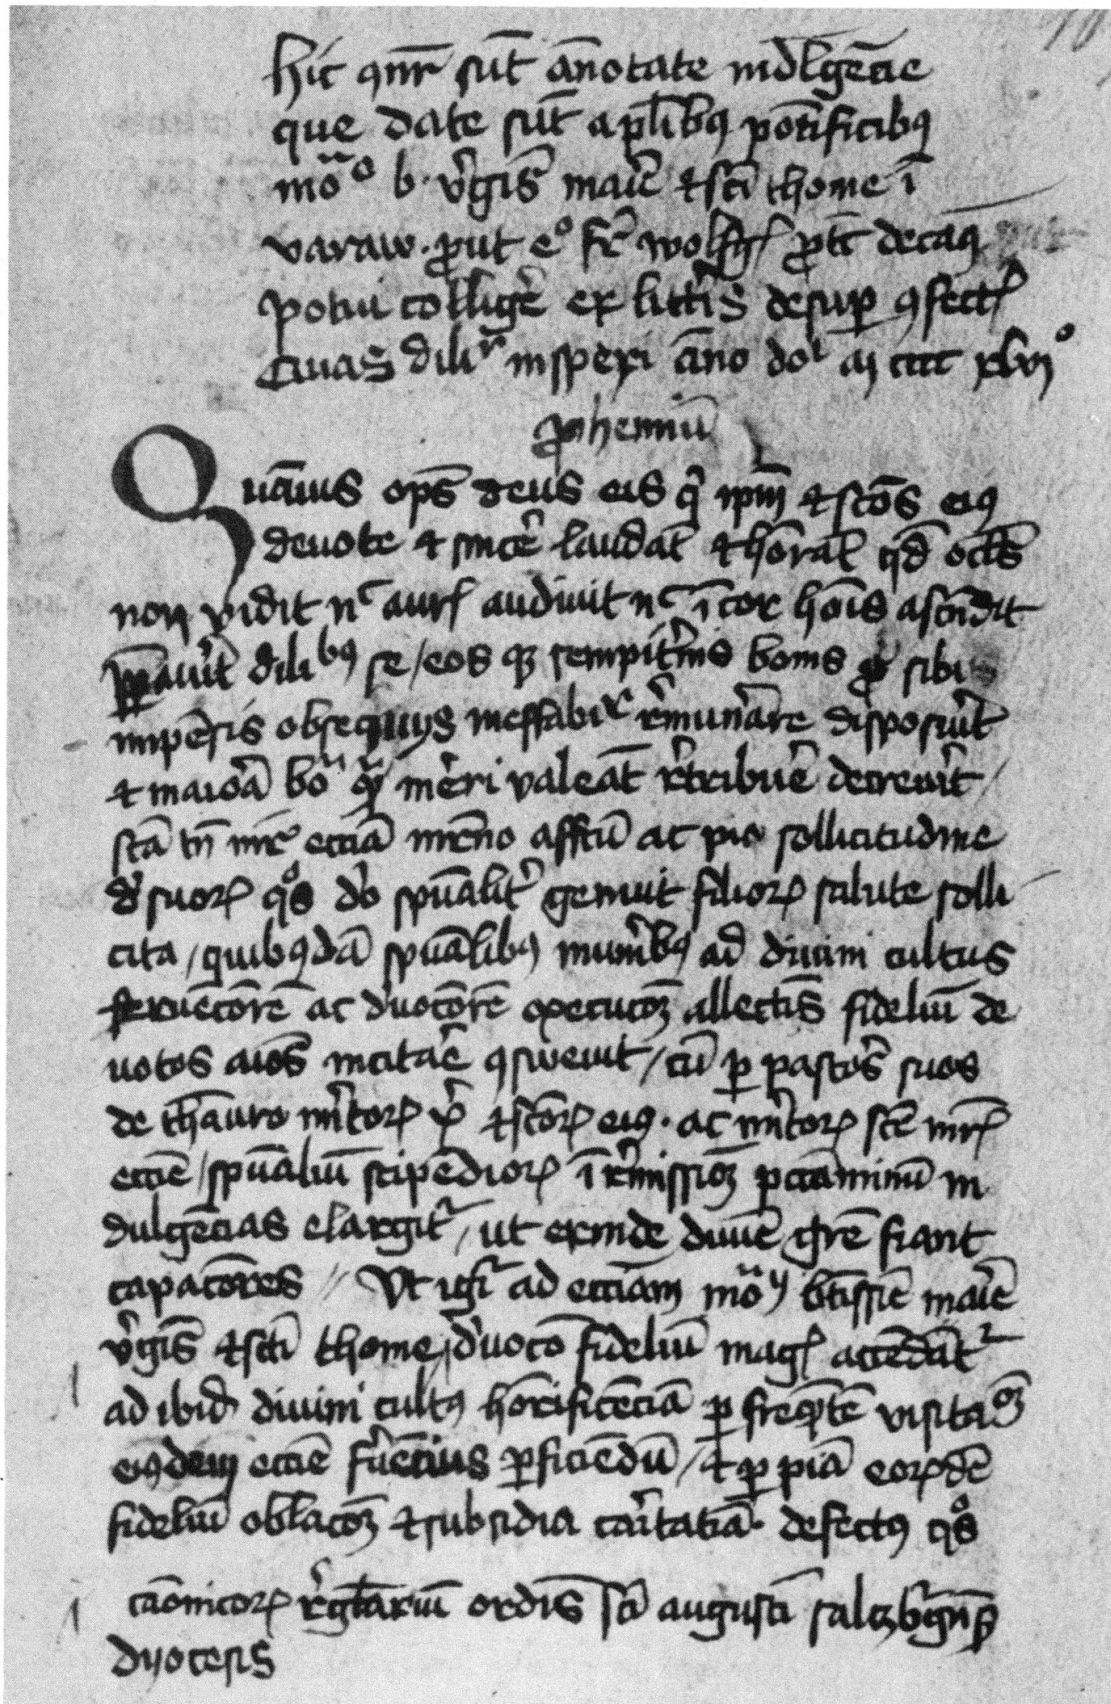 hic qnr sūt ānotate indlgēcie
que date sūt a plibꝰ pōtificibꝰ
mō⁰ b. vͥgiſ maīe et sci thome ī
varaw. ꝓut e⁰ fr̄ wolfgꝭ decanꝰ
potui collige̅ ex littīs desup ꝯfectꝭ
quas diliᵗ inspexi āno doⁱ m cccc xlvij⁰
ꝓhemiū
Quāuis ops deus eis qͥ ip̄m et scōs eiꝰ
deuote et sincēr laudāt et honorāt qd̄ oclꝰs
non vidit nᶜ aurꝭ audiuit nᶜ ī cor hoīs ascēdit
ꝑpauīt diliᵇꝰ se / eos qꝫ sempitn̄is bonis ꝓ sibi
impēsis obsequijs ineffabiʳ rᵉmunāre disposuīt
et maiōa boᵃ qͣ mēri valeāt rᵉtribuē decreuīt /
scā tn̄ mr̄ eccīa mr̄no affctū ac pia sollicitudine
dᵉ suorꝝ qͦs dō spūalit genuit filiorꝝ salute solli
cita / quibꝰdā spūalibꝰ munībꝰ ad diuini cultus
feruēcōrē ac dᵉuocōrē execucōꝫ allectīs fideliū de
uotos aīos incitāe ꝯsweuit / cū ꝑ pastoꝰs suos
de thēauro mītorꝝ xͥ et scōrꝝ eiꝰ. ac mītorꝝ scē mr̄ꝭ
eccīe / spūaliū stipēdiorꝝ ī rᵉmissioꝫ pccaminū in
dulgēcias elargitʳ / ut exinde diuīe grē fiant
capacōres // Ut igiͬ ad eccīam mōʳꝰ btīssīe maīe
vͥgiſ et scti thome / dᵉuocō fideliū magꝭ accēdātʳ
ad ibid diuini cultꝰ honōrificēciā ꝑ freqᵃtē visitaꝫ
eiꝰdem eccīe fuēcius ꝑficiēdū / et ꝑ piā eorꝝdē
fideliū oblacōꝫ et subsidia caīrtatiā. defectꝰ qͦs
canōnicorꝝ rᵉglariū ordīs sci augusti salczburgn̄
dyocesis